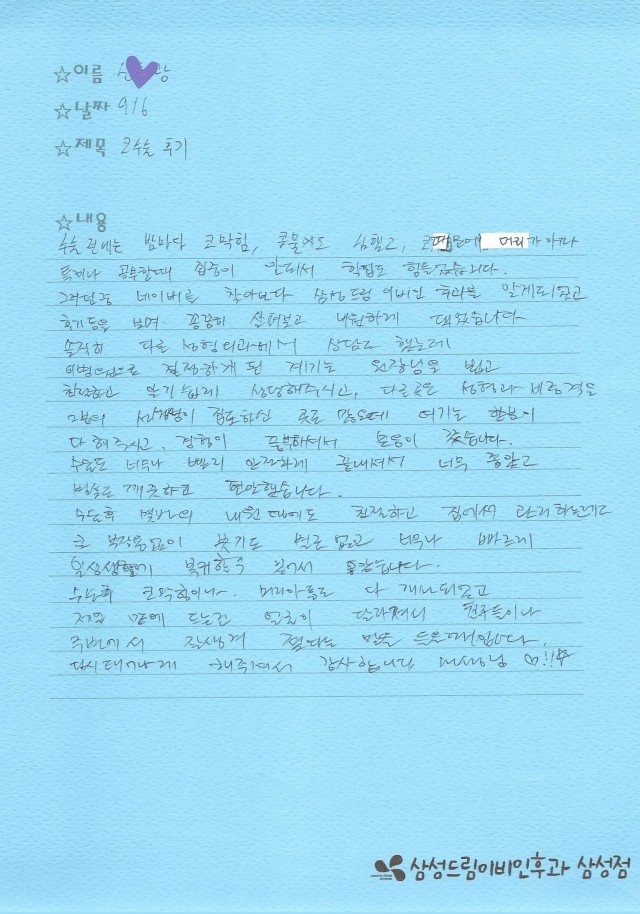 ☆이름
☆날짜 9/6
☆제목 코수술 후기
☆내용
수술 전에는 밤마다 코막힘, 콧물에도 심했고, 머리가 아파
특히나 공부할때 집중이 안돼서 학업도 힘들었습니다.
그러던중 네이버를 찾아보다 삼성드림 이비인후과를 알게되었고
후기들을 보며 꼼꼼히 살펴보고 내원하게 되었습니다
솔직히 다른 성형외과에서 상담도 했는데
이병원으로 결정하게 된 계기는 원장님을 뵙고
친절하고 알기 쉽게 상담해주시고, 다른곳은 성형과 비중격을
2분의 선생님이 집도하신 곳도 많은데 여기는 한분이
다 해주시고, 경험이 풍부하셔서 믿음이 갔습니다.
수술도 너무나 빨리 안전하게 끝내셔서 너무 좋았고
병실도 깨끗하고 편안했습니다.
수술후 몇번의 내원 때에도 친절하고 집에서 관리하는데도
큰 부작용없이 붓기도 별로 없고 너무나 빠르게
일상생활에 복귀할수 있어서 좋았습니다.
수술후 코막힘이나 머리아픔도 다 개선되었고
제일 맘에 드는건 얼굴이 달라져서 친구들이나
주변에서 잘생겨 졌다는 말을 들을때입니다.
다시태어나게 해주셔서 감사합니다 ♡!!
삼성드림이비인후과 삼성점